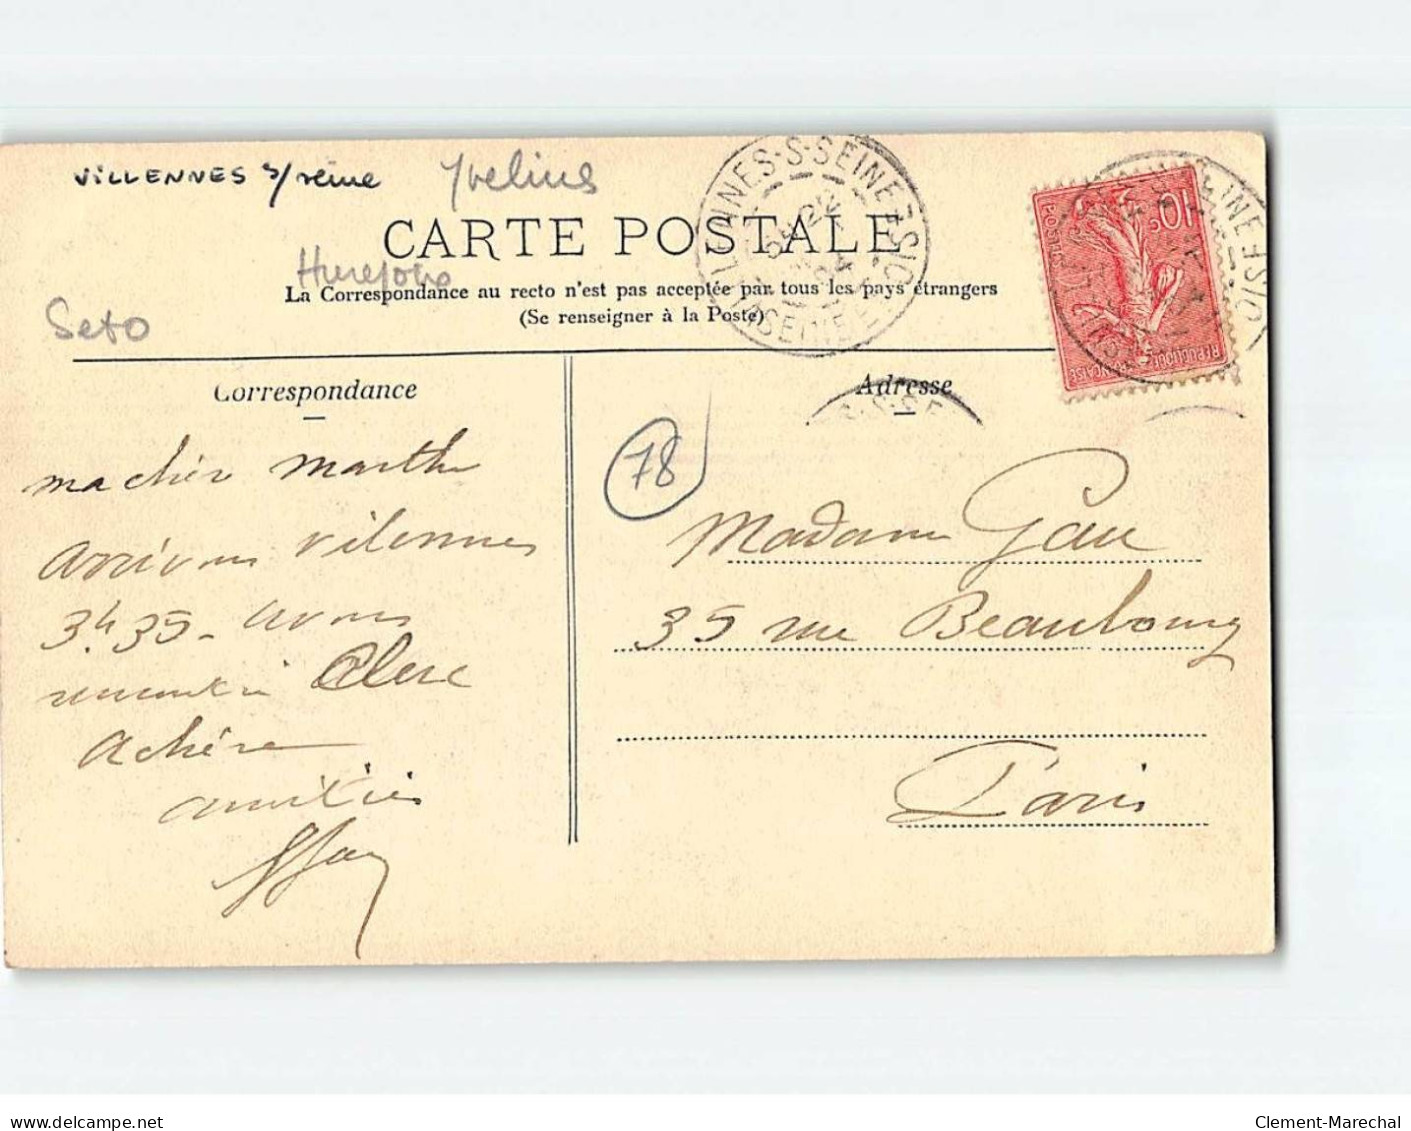 VILLENNES s/seine Yvelines
CARTE POSTALE
La Correspondance au recto n'est pas acceptée par tous les pays étrangers
(Se renseigner à la Poste)
Correspondance
Adresse
78
ma chère Marthe
arrivons vilennes
3h35 - avons
rencontré Clerc
Achère
amitiés
Madame Gau
35 rue Beaubourg
Paris
VILLENNES-S-SEINE
SEINE-ET-OISE
10c
POSTES
RÉPUBLIQUE FRANÇAISE
www.delcampe.net
Clement-Marechal